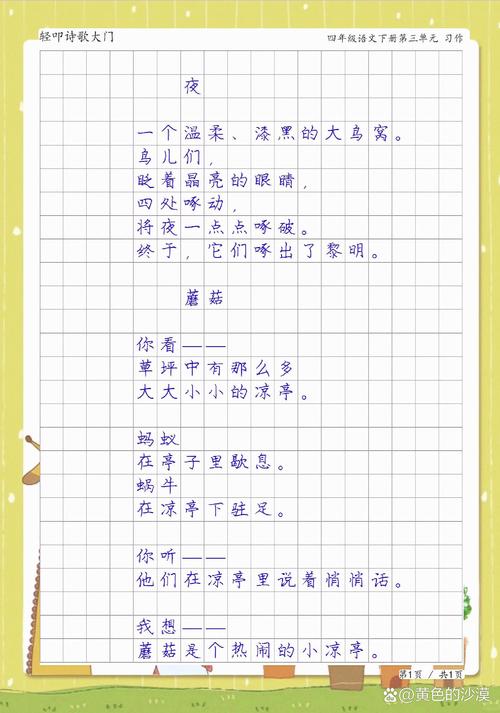 轻叩诗歌大门
四年级语文下册第三单元 习作
夜
一个温柔、漆黑的大鸟窝。
鸟儿们，
眨着晶亮的眼睛，
四处啄动，
将夜一点点啄破。
终于，它们啄出了黎明。
蘑菇
你看——
草坪中有那么多
大大小小的凉亭。
蚂蚁
在亭子里歇息。
蜗牛
在凉亭下驻足。
你听——
他们在凉亭里说着悄悄话。
我想——
蘑菇是个热闹的小凉亭。
第1页 / 共1页
@黄色的沙漠